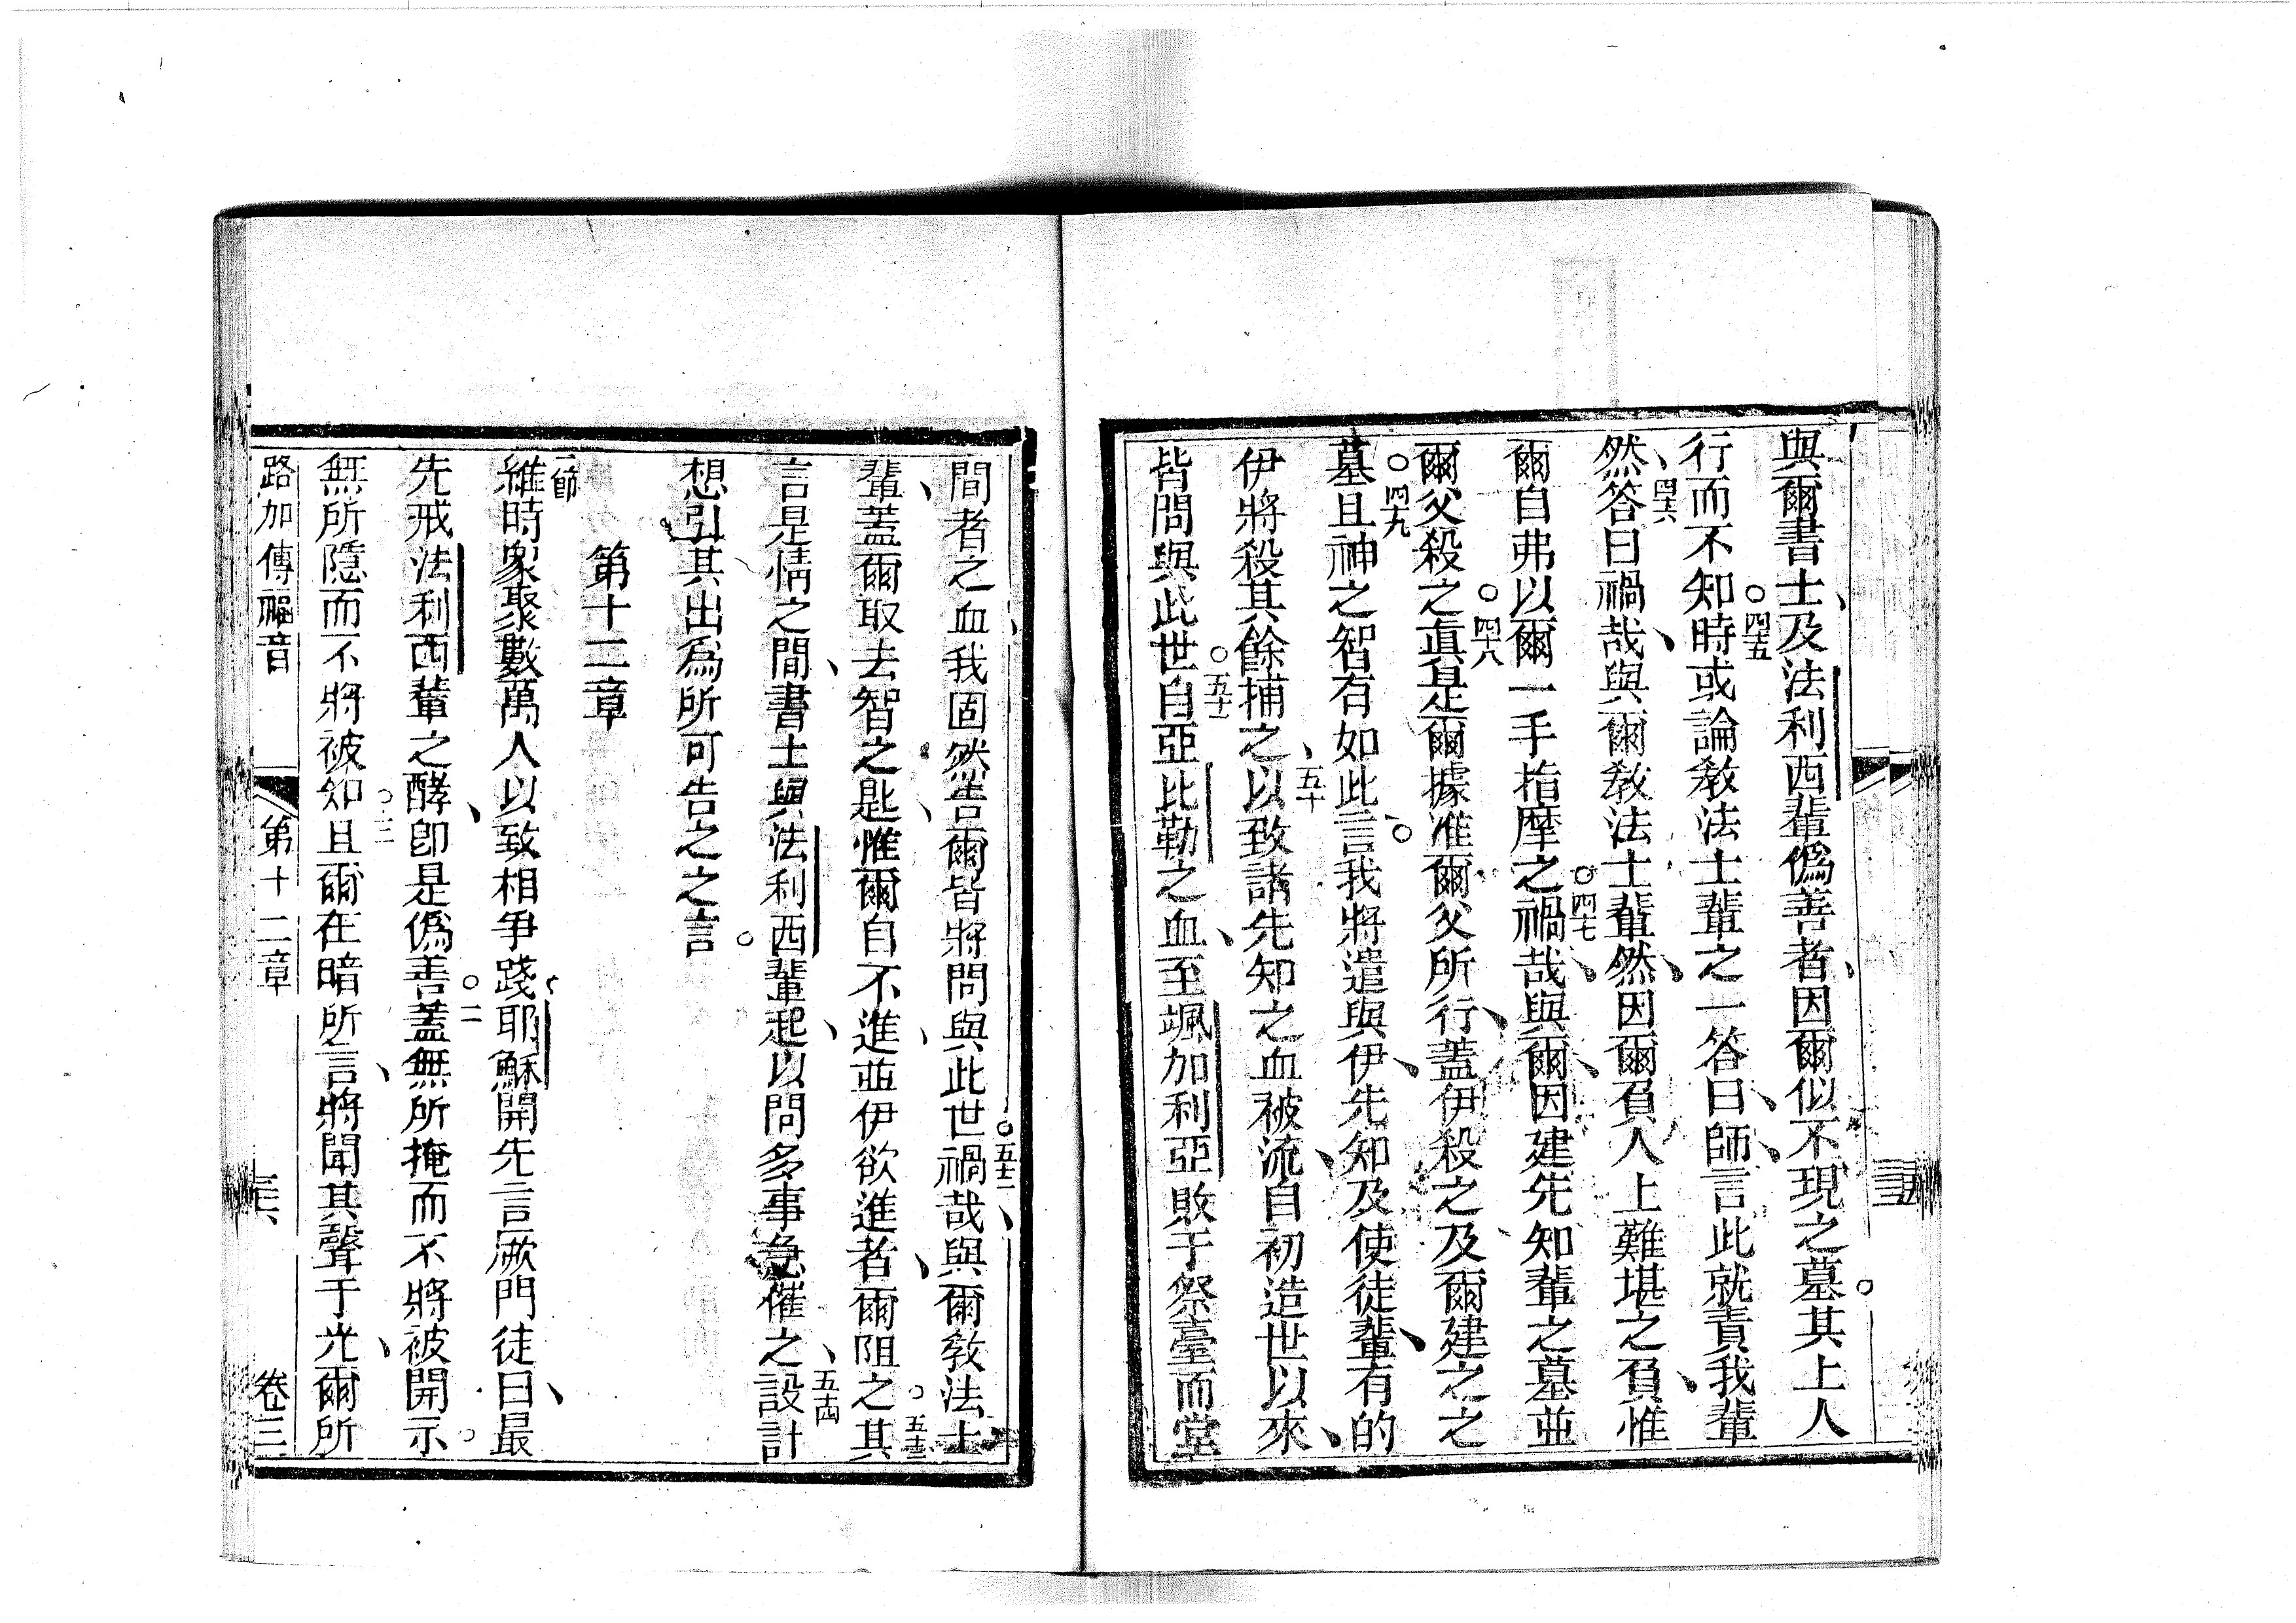 與爾書士及法利西輩僞善者因爾似不現之墓其上人
行而不知四五時或論教法士輩之一答曰師言此就責我輩
然四六答曰禍哉與爾教法士輩然因爾負人上難堪之負惟
爾自弗以爾一手指摩之四七禍哉與爾因建先知輩之墓並
爾父殺之四八眞是爾據准爾父所行蓋伊殺之及爾建之之
墓四九且神之智有如此言我將遣與伊先知及使徒輩有的
伊將殺其餘捕之五十以致諸先知之血被流自初造世以來
皆問與此世五十一自亞比勒之血至颯加利亞敗于祭臺而堂
間者之血我固然告爾皆將問與此世五十二禍哉與爾教法士
輩蓋爾取去智之匙惟爾自不進並伊欲進者爾阻之五十三其
言是情之間書士與法利西輩起以問多事急催之五十四設計
想引其出爲所可告之之言
第十二章
一節維時衆聚數萬人以致相爭踐耶穌開先言厥門徒曰最
先戒法利西輩之酵卽是僞善二蓋無所掩而不將被開示
無所隱而不將被知三且爾在暗所言將聞其聲于光爾所
路加傳福音 第十二章 卷三